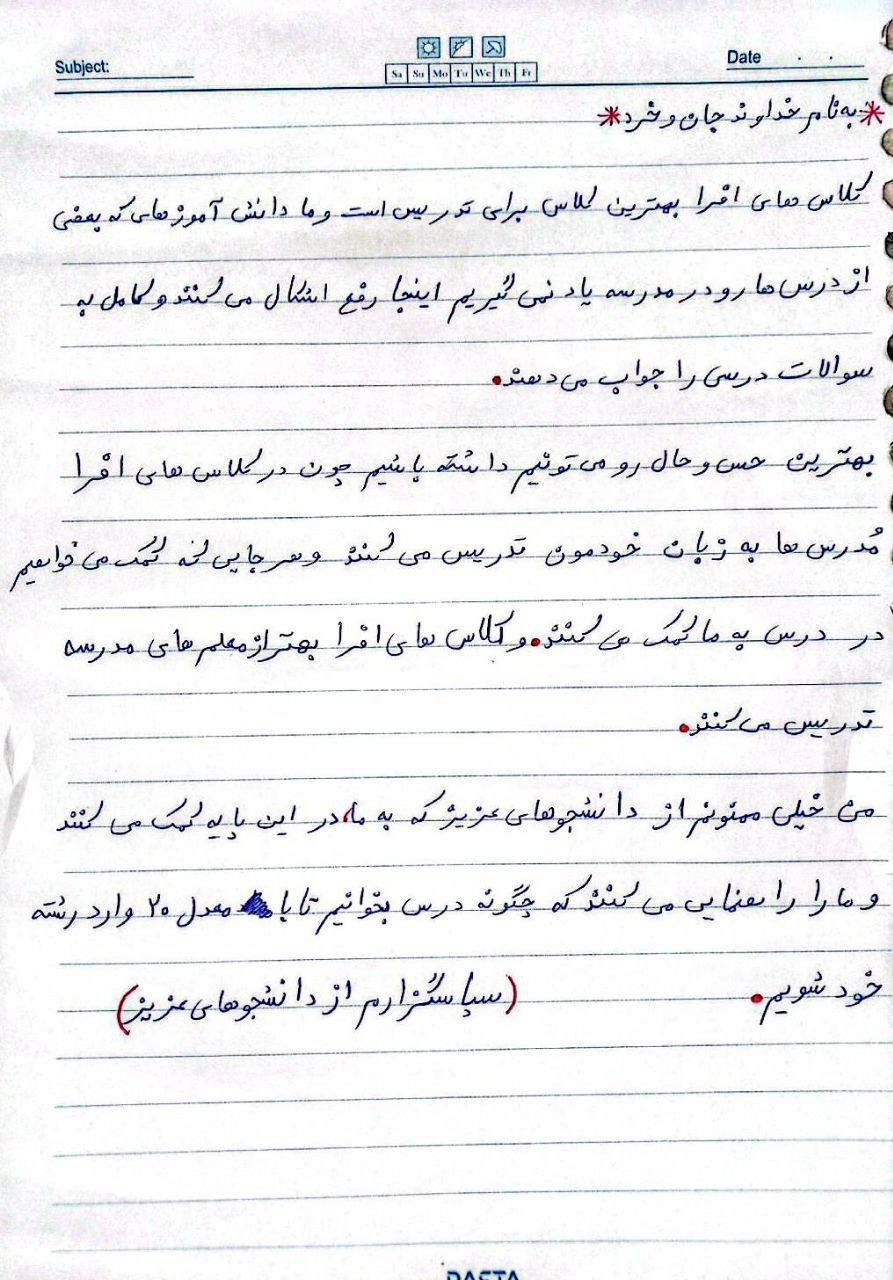 Subject:
Date . .
Sa Su Mo Tu We Th Fr
*به نام خداوند جان و خرد*
کلاس های افرا بهترین کلاس برای تدریس است و ما دانش آموزهای که بعضی
از درس ها رو در مدرسه یاد نمی گیریم اینجا رفع اشکال می کنند و کامل به
سوالات درسی را جواب می دهند.
بهترین حس و حال رو می تونیم داشته باشیم چون در کلاس های افرا
مُدرس ها به زبان خودمون تدریس می کنند و هر جایی که کمک می خواهیم
در درس به ما کمک می کنند. و کلاس های افرا بهتر از معلم های مدرسه
تدریس می کنند.
من خیلی ممنونم از دانشجوهای عزیز که به ما، در این پایه کمک می کنند
و ما را راهنمایی می کنند که چگونه درس بخوانیم تا با معدل ۲۰ وارد رشته
خود شویم. (سپاسگزارم از دانشجوهای عزیز)